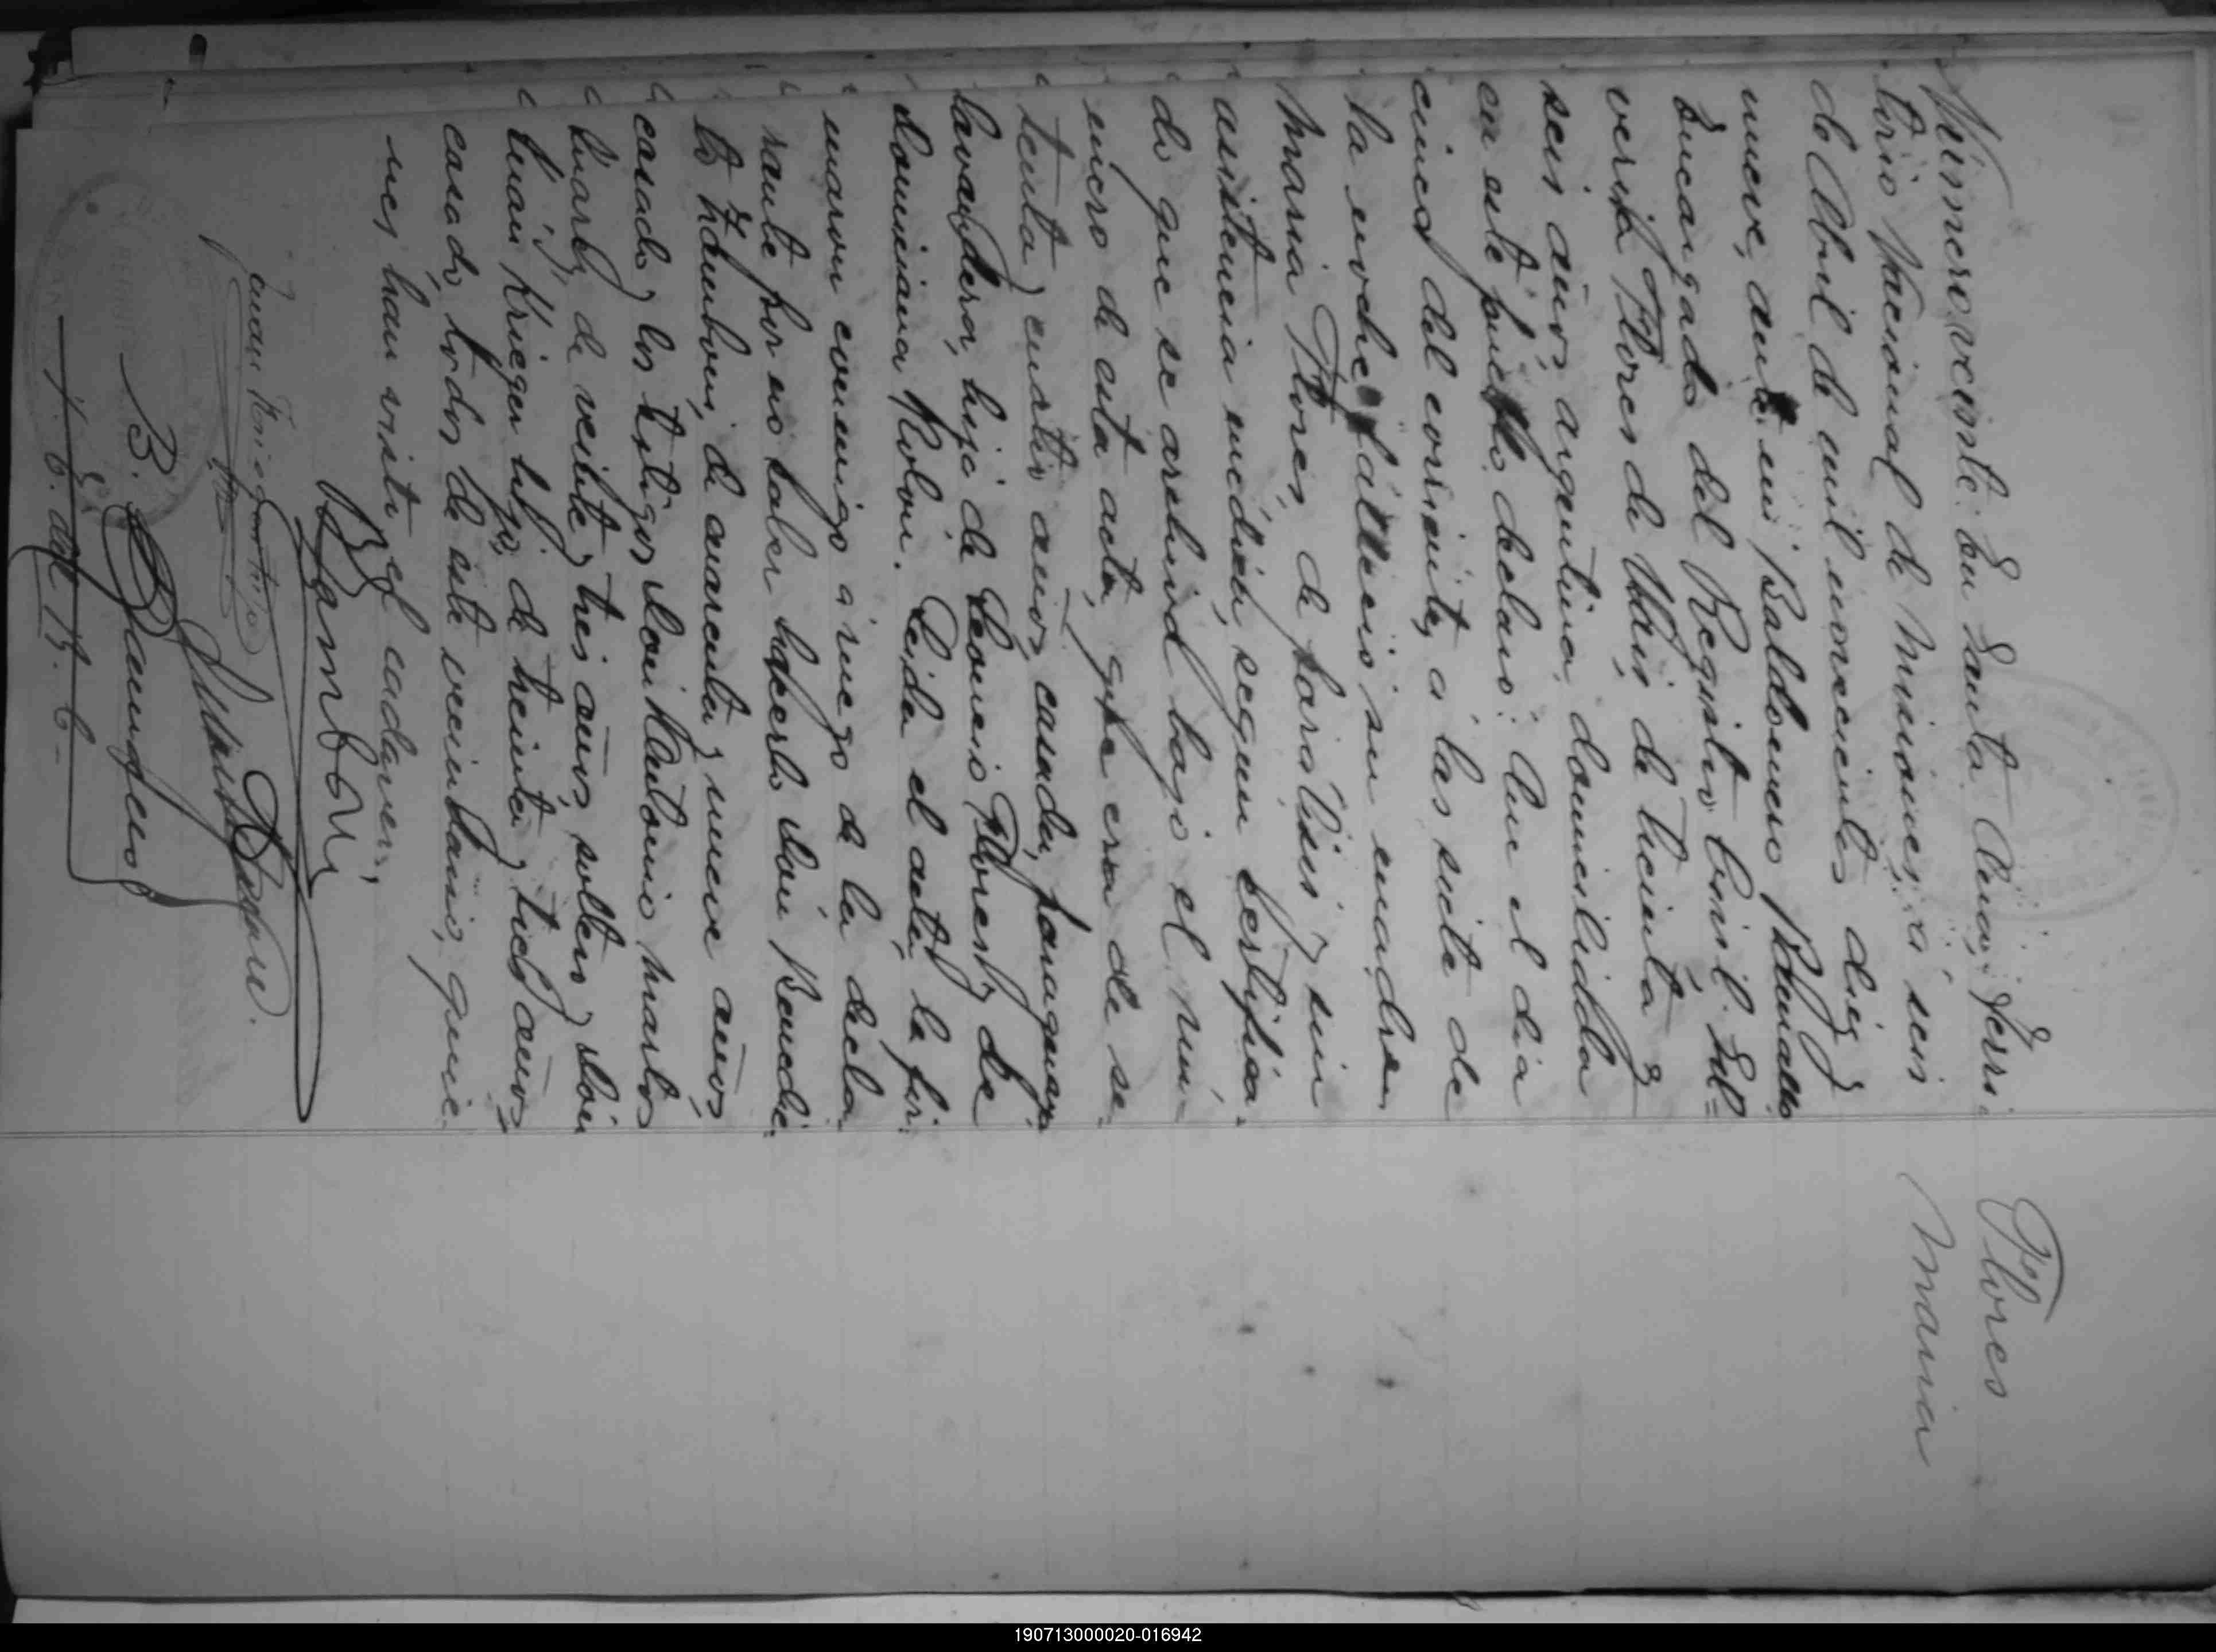 Flores
Maria
Número veinte: En Santa Ana, Terri-
torio Nacional de Misiones, á seis
de Abril de mil novecientos diez y
nueve, ante mi Baldomero
Encargado del Registro Civil. Sil-
veria Flores de de treinta y
seis años, argentina, domiciliada
en este pueblo, declaró: Que el dia
cinco del corriente, a las siete de
la noche falleció su madre
Maria Flores, de paralisis y sin
asistencia médica, segun certifica-
do que se archivó bajo el nú-
mero de esta acta, que era de se-
tenta y cuatro años, casada, paraguaya,
lavandera, hija de Flores y de
Dominiana Leida el acta, la fir-
maron conmigo a ruego de la decla-
rante por no saber hacerlo don Benedic-
to Zamboni, de cuarenta y nueve años,
casado, y los testigos don Antonio
de veinte y tres años, soltero y don
Juan Krieger hijo, de treinta y tres años
casado, todos de este vecindario, quie-
nes han visto el cadaver.
B Zamboni
Juan Krieger hijo
B.